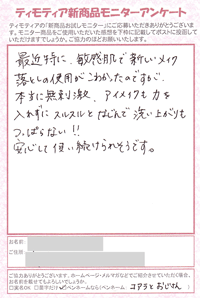 ティモティア新商品モニターアンケート
ティモティアの「新商品お試しモニター」にご応募いただきありがとうございます。
モニター商品をご使用いただいた感想を下枠に記載してポストに投函して
いただけますでしょうか。ご協力のほどお願いします。
最近特に、敏感肌で新しいメイク
落としの使用がこわかったのですが、
本当に無刺激、アイメイクも力を
入れずにスルスルとはじんで洗い上がりも
つっぱらない!!
安心して使い続けられそうです。
お名前
ご住所
ご協力ありがとうございます。ホームページ・メルマガなどでご紹介させていただく場合、
お名前を載せてもよろしいでしょうか。
□実名OK □苗字だけ ペンネームなら(ペンネーム コアラとおじさん